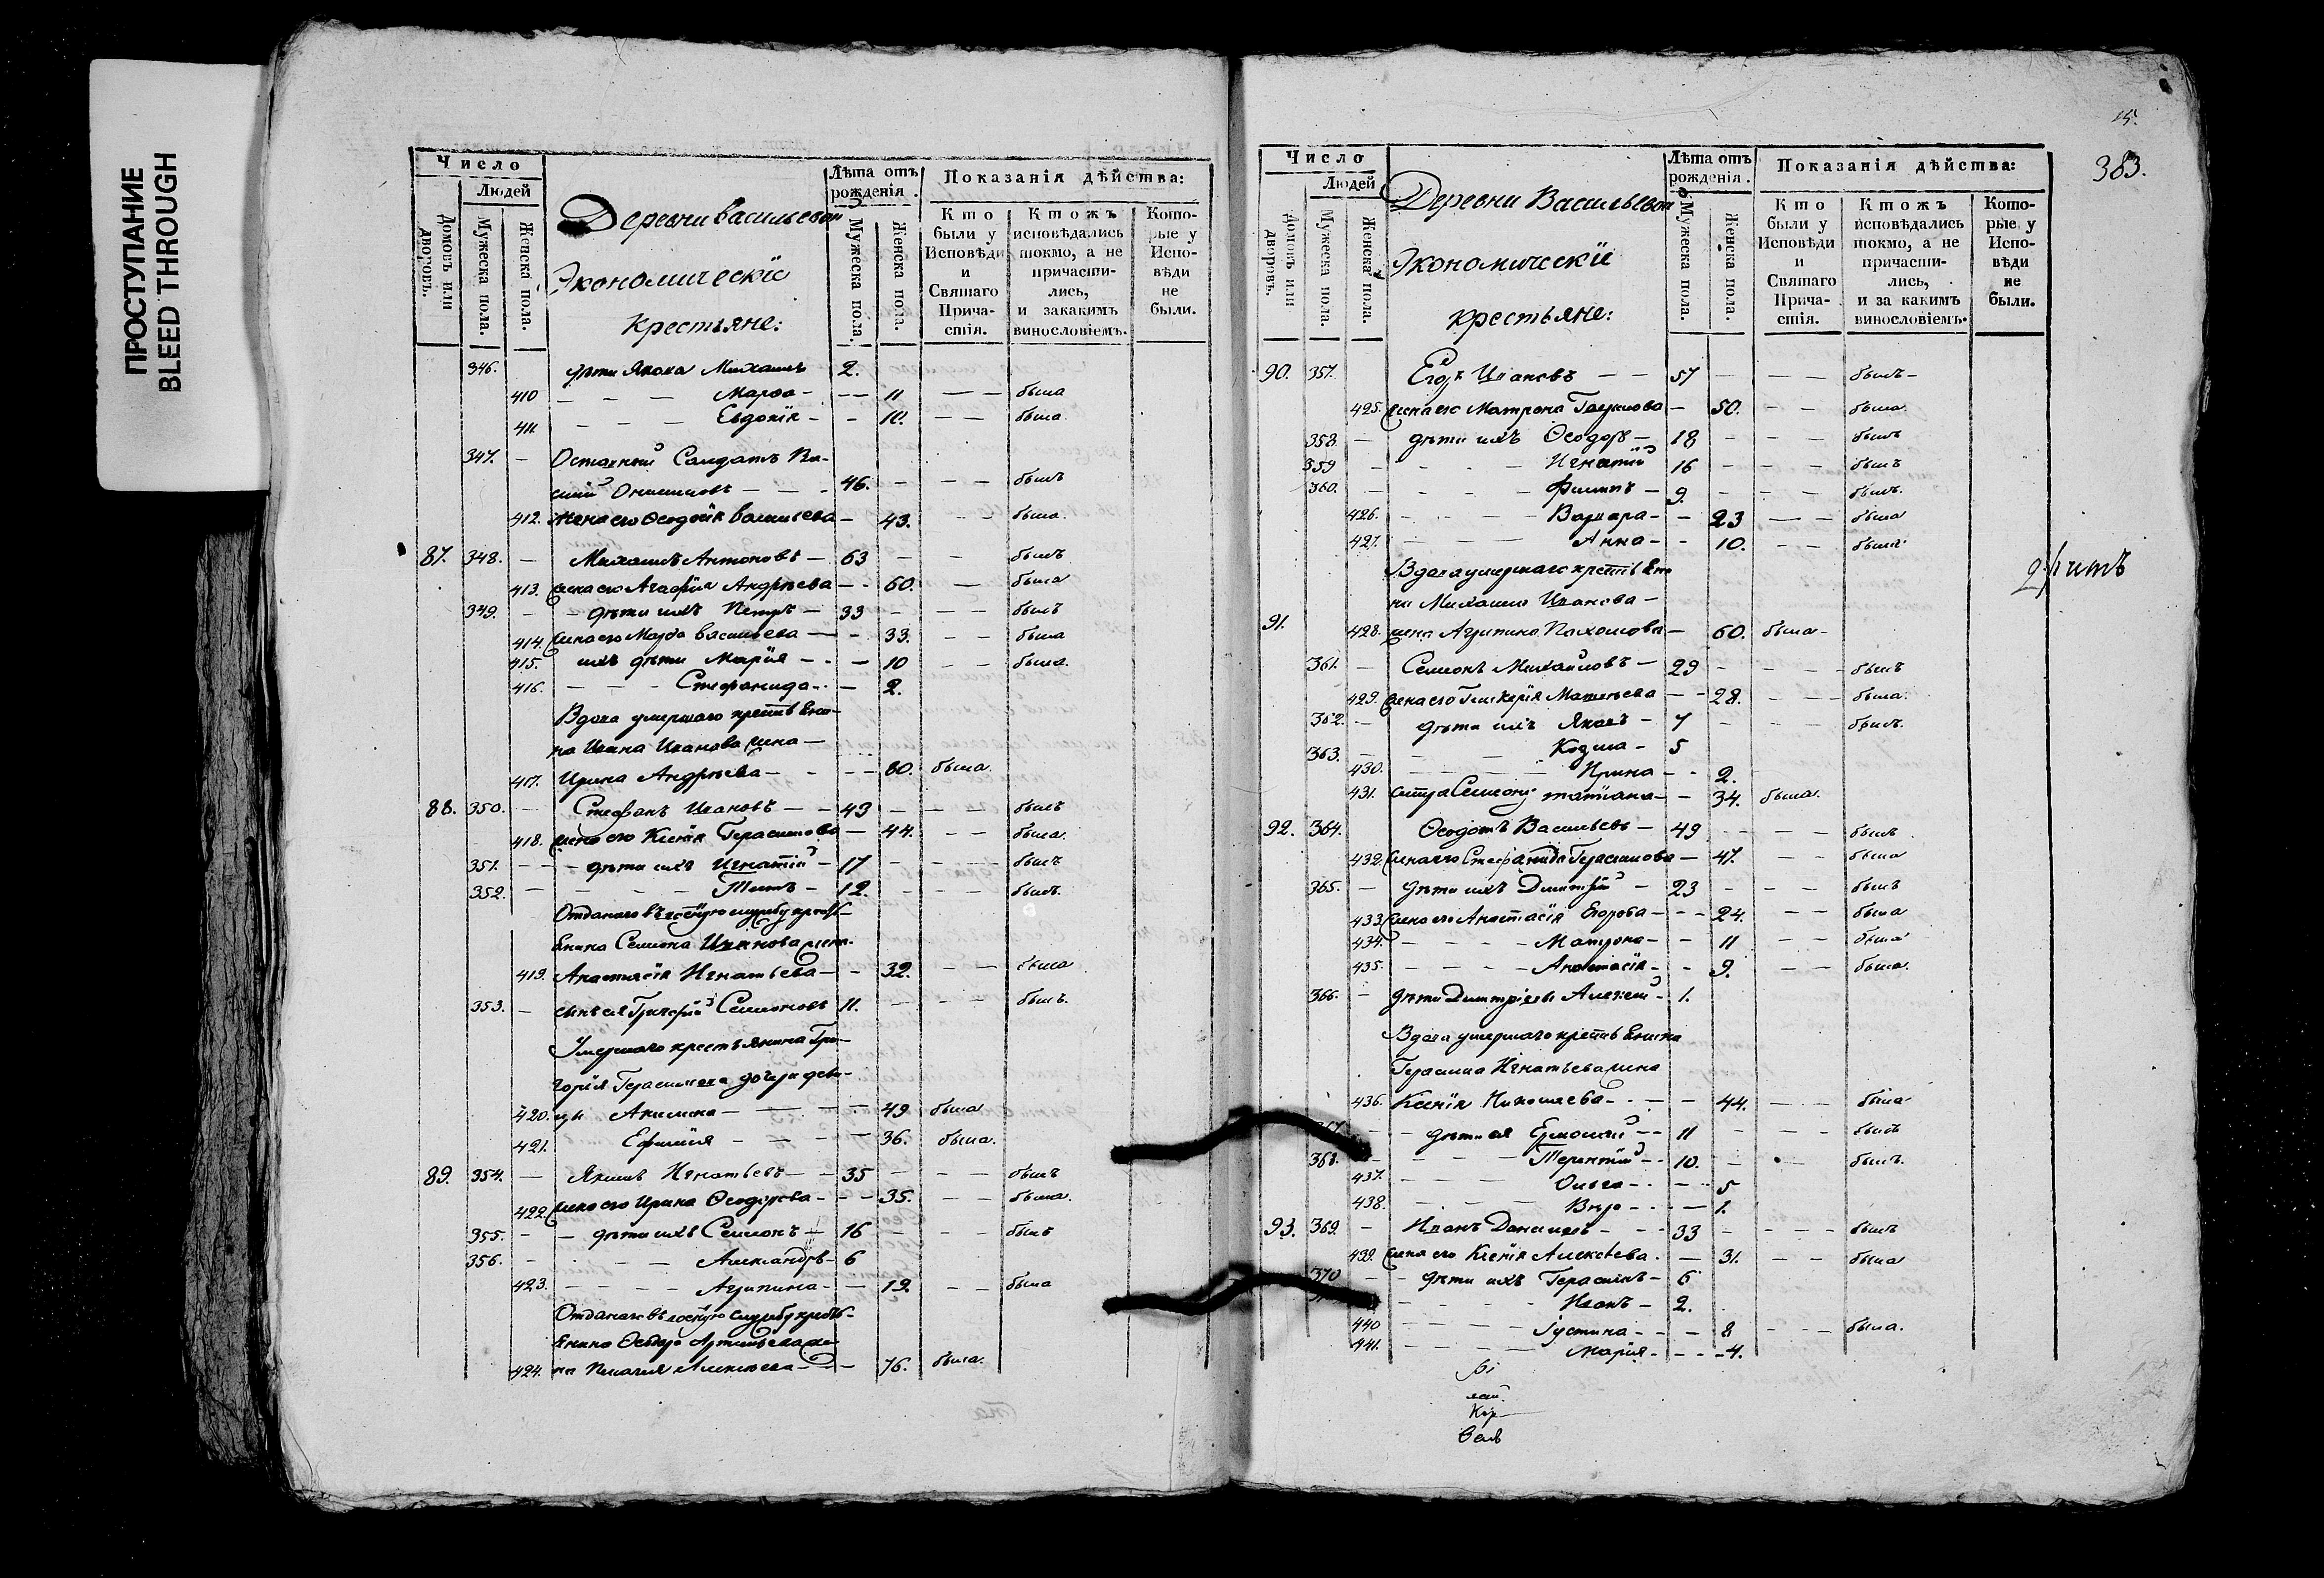 ПРОСТУПАНИЕ
BLEED THROUGH
Число
Людей
Домовъ или дворовъ.
Мужеска пола.
Женска пола.
Деревни Васильевой
Экономическiе
крестьяне:
Лѣта отъ рожденiя.
Мужеска пола.
Женска пола.
Показанiя дѣйства:
Кто были у Исповѣди и Святаго Причастiя.
Ктожъ исповѣдались токмо, а не причастились, и закакимъ винословiемъ.
Которые у Исповѣди не были.
346. дѣти Якова Михаилъ 2.
410 — — — Марѳа — — — 11 — — была
411. — — — Евдокiя — — 10. — — была
347. — Отставный Салдатъ Ва-
силiй Онисимовъ — — — 46. — — — былъ
412. жена его Ѳеодосiя Васильева — 43. — — была.
87. 348. — Михаилъ Антоновъ — 63 — — былъ
413. жена его Агафiя Андрѣева — — 60. — была
349. — — дѣти ихъ Петръ — 33 — — — былъ
414. жена его Марѳа Васильева — — 33. — — была
415. ихъ дѣти Марiя — — — 10 — — была.
416. — — — Стефанида — — 2.
Вдова умершаго крестьяни-
на Ивана Иванова жена —
417. Ирина Андрѣева — — — — 80. была.
88. 350. — Стефанъ Ивановъ — — 43 — — — былъ
418. жена его Ксенiя Герасимова — 44. — — была.
351. — — — дѣти ихъ Игнатiй — 17 — — — былъ
352. — — — — Титъ — 12. — — — былъ.
Отданаго въ военную службу кресть-
янина Семiона Иванова жена
419. Анастасiя Игнатьева — — 32. — — была
353. — сынъ ея Григорiй Семионовъ 11. — — — былъ.
Умершаго крестьянина Гри-
горiя Герасимова дочери деви-
420. цы Акилина — — — — 49. была
421. Ефимiя — — — — 36. была.
89. 354. — Якимъ Игнатьевъ — — 35 — — — былъ
422. жена его Ирина Ѳеодорова — — — 35. — — была.
355. — — дѣти ихъ Семионъ — 16 — — — былъ
356. — — — — Александръ — 6
423. — — — — Агрипина — — 12 — — была
Отданаго въ военную службу кресть-
янина Ѳеодора Артемьева же-
424. на Пелагия Алексѣева — — 76. была.
15.
383.
Число
Людей
Домовъ или дворовъ.
Мужеска пола.
Женска пола.
Деревни Васильевой
Экономическiе
крестьяне:
Лѣта отъ рожденiя.
Мужеска пола.
Женска пола.
Показанiя дѣйства:
Кто были у Исповѣди и Святаго Причастiя.
Ктожъ исповѣдались токмо, а не причастились, и за какимъ винословiемъ.
Которые у Исповѣди не были.
90. 357. Егоръ Ивановъ — — 57 — — — былъ —
425. жена его Матрона Гаврилова — 50. — — была.
358. — дѣти ихъ Ѳеодоръ — 18 — — — былъ
359 — — — — Игнатiй 16 — — — былъ
360. — — — — Филипъ — 9. — — — былъ.
426. — — — — Варвара — — 23 — — была
427. — — — — Анна — — 10. — — была
Вдова умершаго крестьяни-
на Михаила Иванова —
91. 428. жена Агрипина Пахомова — 60. была —
361. — Семионъ Михайловъ — 29 — — — былъ
429. жена его Гликерiя Матвѣева — — 28. — — была.
362. — дѣти ихъ Яковъ — 7 — — — былъ.
363. — — — Козма — 5
430. — — — — Ирина — — 2.
431. сестра Семиону Татiана — — 34. была.
92. 364. Ѳеодотъ Васильевъ — 49 — — — былъ
432. жена его Стефанида Герасимова — 47. — — была
365. — дѣти ихъ Димитрiй — 23 — — — былъ
433. жена его Анастасiя Егорова — — — 24. — — была
434. — — — — Матрона — — 11 — — была
435. — — — — Анастасiя — — 9. — — была.
366. — дѣти Димитрiевы Алексiй — 1.
Вдова умершаго крестьянина
Герасима Игнатьева жена
436. Ксенiя Николаева — — — 44. — — была
— — дѣти ея Ермолай — — 11 — — — былъ
368. — — — Терентiй — — 10. — — былъ.
437. — — — Ольга — — — 5
438. — — — Вѣра — — — 1.
93. 369. — Иванъ Даниловъ — — 33 — — — былъ
439. жена его Ксенiя Алексѣева. — 31. — — была
370 — — дѣти ихъ Герасимъ — 6
— — — — Иванъ — 2.
440 — — — — Iустина — — — 8 — — была.
441. — — — — Марiя — — — 4.